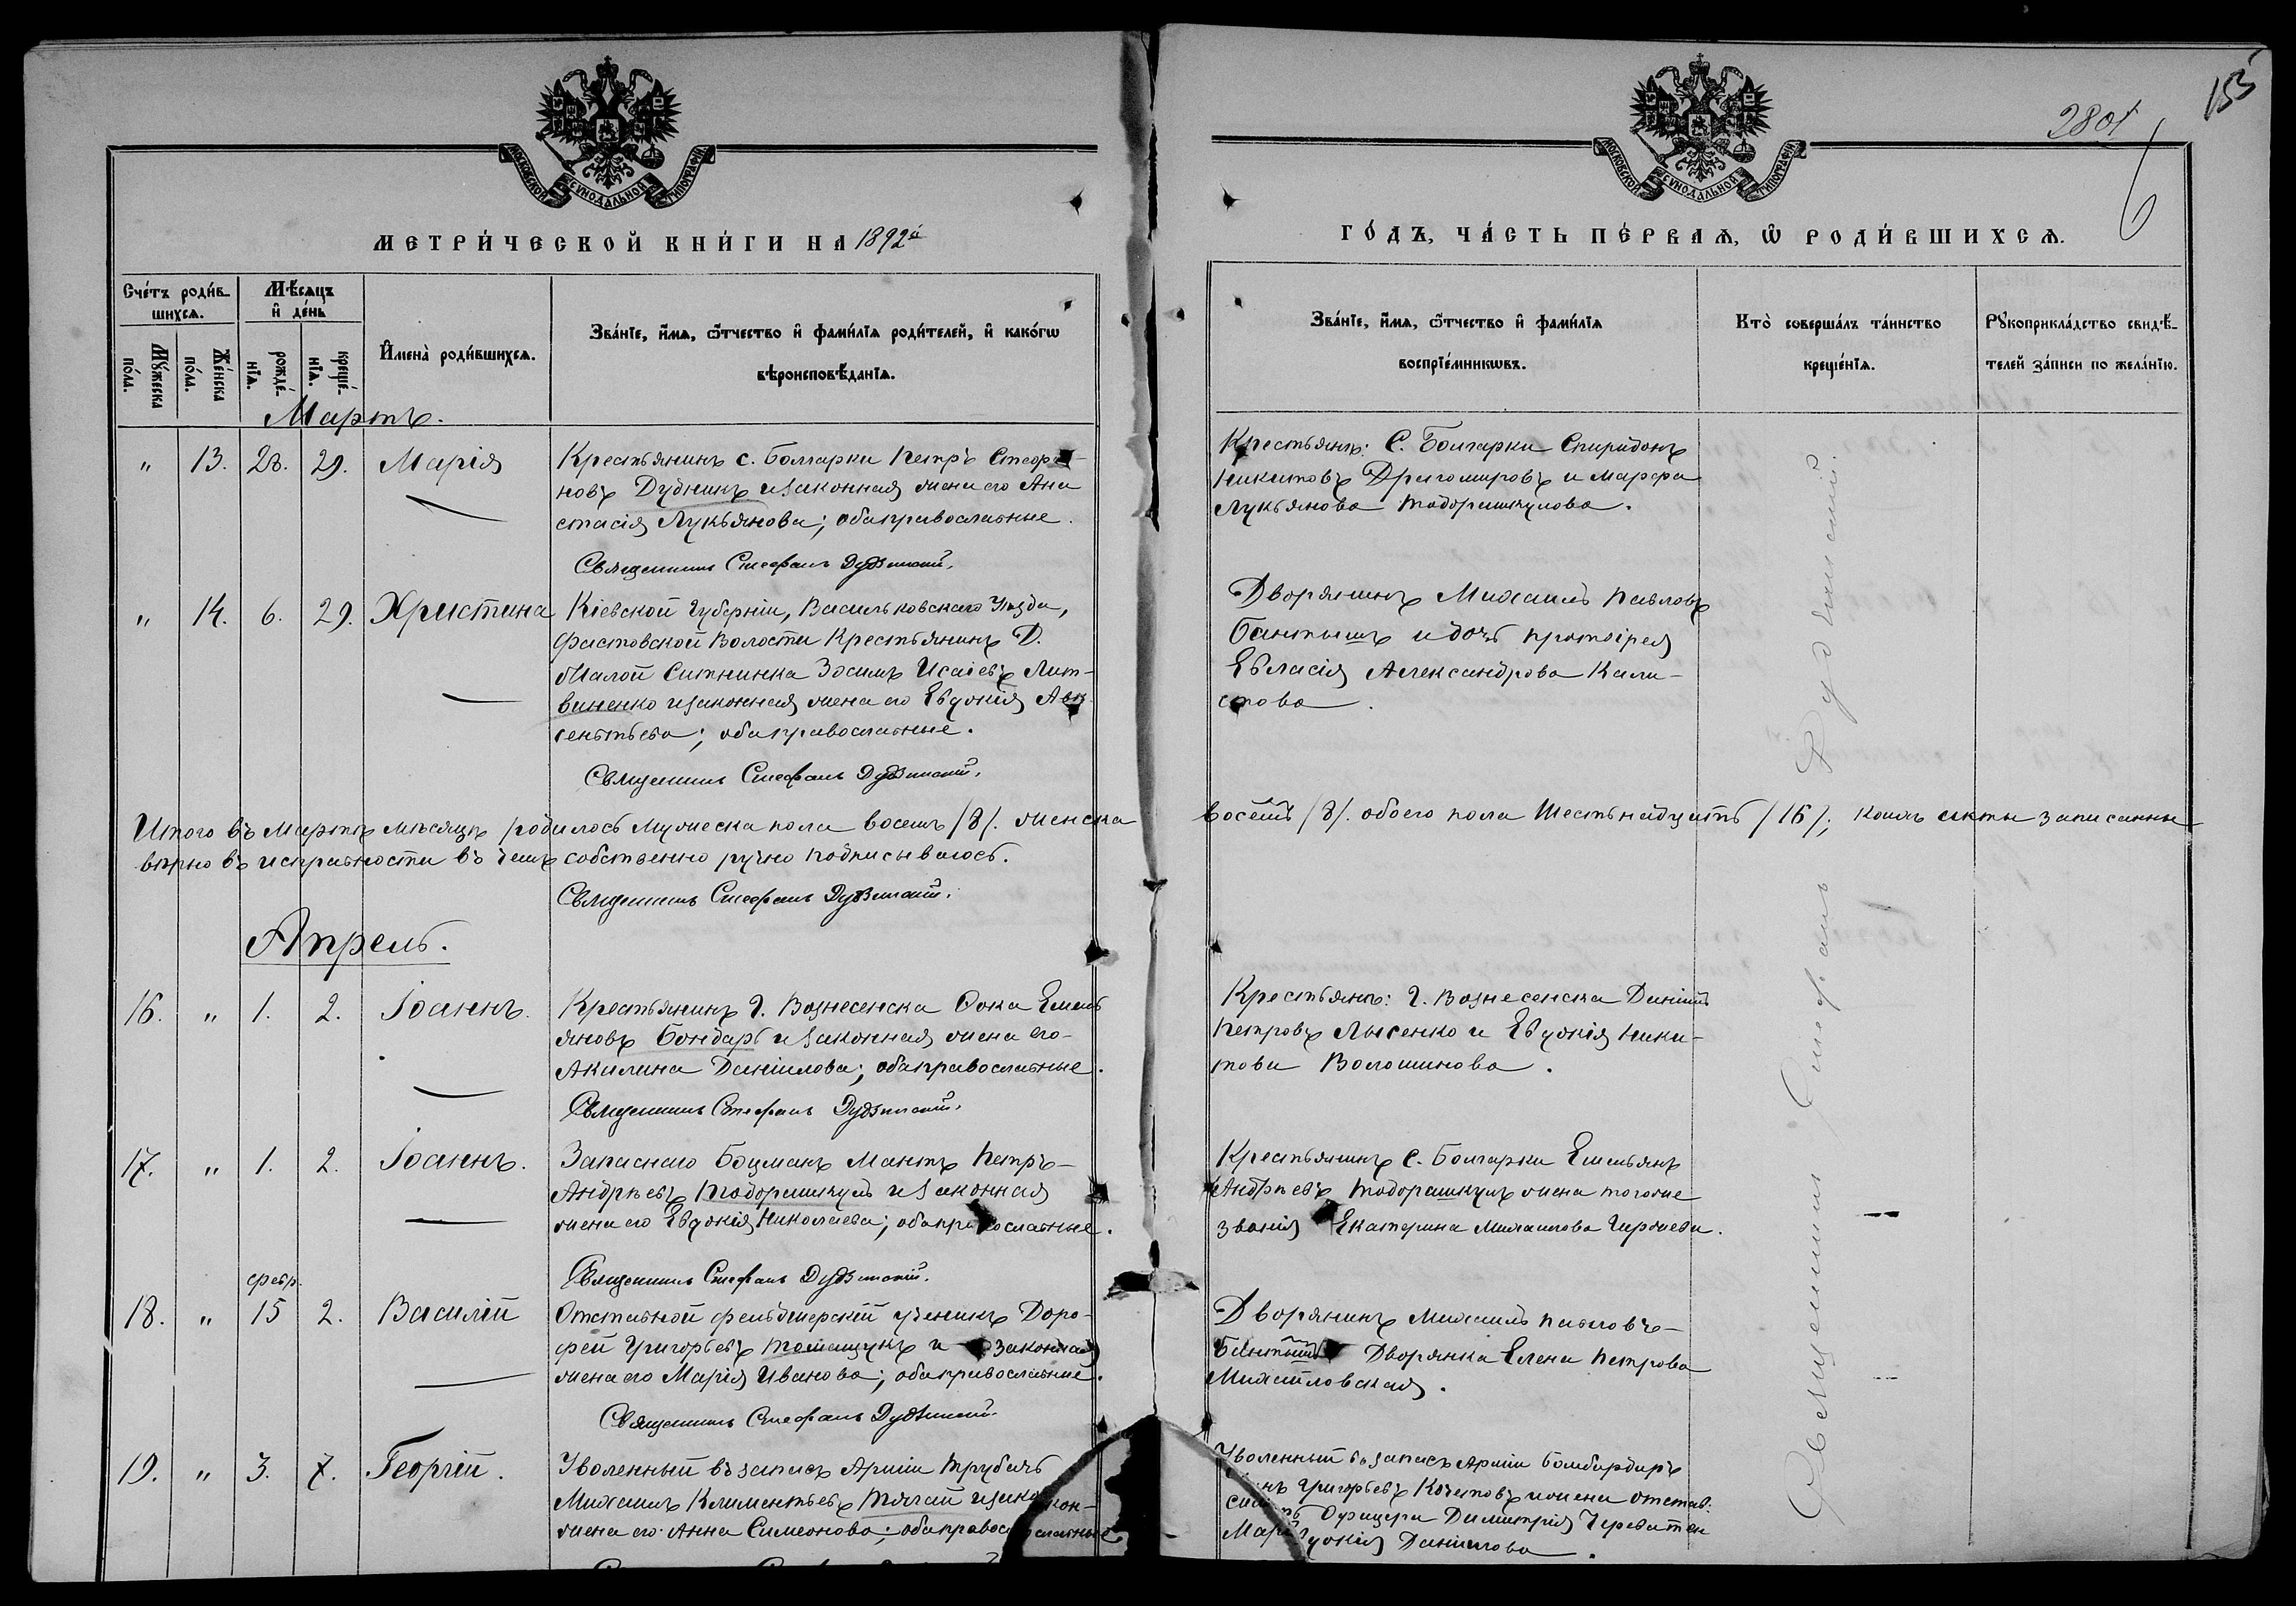 153
2801
6
МОСКОВСКОЙ СѴНОДАЛЬНОЙ ТИПОГРАФІИ
МОСКОВСКОЙ СѴНОДАЛЬНОЙ ТИПОГРАФІИ
МЕТРИ́ЧЕСКОЙ КНИ́ГИ НА 1892й
ГО́ДЪ, ЧА́СТЬ ПЕ́РВАѦ, Ѡ҆ РОДИ́ВШИХСѦ.
Сче́тъ роди́в-
шихсѧ.
Мѣ́сѧцъ
и҆ де́нь
Мꙋ́жеска
по́ла.
Же́нска
по́ла.
рожде́-
нїѧ.
креще́-
нїѧ.
И҆мена̀ роди́вшихсѧ.
Зва́нїе, и҆́мѧ, ѻ҆́тчество и҆ фами́лїѧ роди́телей, и҆ како́гѡ
вѣроисповѣ́данїѧ.
Зва́нїе, и҆́мѧ, ѻ҆́тчество и҆ фами́лїѧ
воспрїе́мникѡвъ.
Кто̀ соверша́лъ та́инство
креще́нїѧ.
Рꙋкоприкла́дство свидѣ́-
телей за́писи по жела́нїю.
Мартъ.
" 13. 28. 29. Марія
Крестьянинъ с. Болгарки Петръ Стефа-
новъ Дубникъ и законная жена его Ана
стасія Лукьянова; оба православные.
Священникъ Стефанъ Дудзинскій.
Крестьянъ: С. Болгарки Спиридонъ
Никитовъ Драгомировъ и Марфа
Лукьянова Тодорашкулова.
" 14. 6. 29. Христина
Кіевской Губерніи, Васильковскаго Уѣзда,
Фастовской Волости Крестьянинъ Д.
Малой Ситнинка Зосимъ Исаіевъ Лит-
виненко и законная жена его Евдокія Авк
сентьева; оба православные.
Священникъ Стефанъ Дудзинскій.
Дворянинъ Михаилъ Павловъ
Бантышъ и дочь протоіерея
Евласія Александрова Кали-
стова.
Итого въ Мартѣ мѣсяцѣ родилось мужеска пола восемь /8/. женска восемь /8/. обоего пола Шестьнадцать /16/; коихъ акты записанны
вѣрно въ исправности въ чемъ собственно ручно подписываюсь.
Священникъ Стефанъ Дудзинскій.
Апрель.
16. " 1. 2. Іоаннъ.
Крестьянинъ г. Вознесенска Фока Емель
яновъ Бондарь и законная жена его
Акилина Даніилова; оба православные.
Священникъ Стефанъ Дудзинскій.
Крестьянъ: г. Вознесенска Даніилъ
Петровъ Лысенко и Евдокія Ники-
това Волошинова.
17. " 1. 2. Іоаннъ.
Запаснаго Боцманъ Матъ Петръ
Андрѣевъ Тодорашкулъ и законная
жена его Евдокія Николаева; оба православные.
Священникъ Стефанъ Дудзинскій.
Крестьянинъ С. Болгарки Емельянъ
Андрѣевъ Тодорашкулъ жена того же
званія Екатерина Михаилова
февр.
18. " 15 2. Василій
Отставной фельдшерскій ученикъ Доро-
фей Григорьевъ Томащукъ и законная
жена его Марія Иванова; оба православные.
Священникъ Стефанъ Дудзинскій
Дворянинъ Михаилъ Павловъ
Бантышъ Дворянка Елена Петрова
Михайловская.
19. " 3. 7. Георгій.
Уволенный въ запасъ Арміи Трубачъ
Михаилъ Климентьевъ Тягай и закон-
жена его Анна Симеонова; оба православные
Уволенный въ запасъ Арміи Бомбардиръ
Григорьевъ Кочетовъ и жена отстав.
Офицера Димитрія
Даніилова.
Священникъ Стефанъ Дудзинскій.